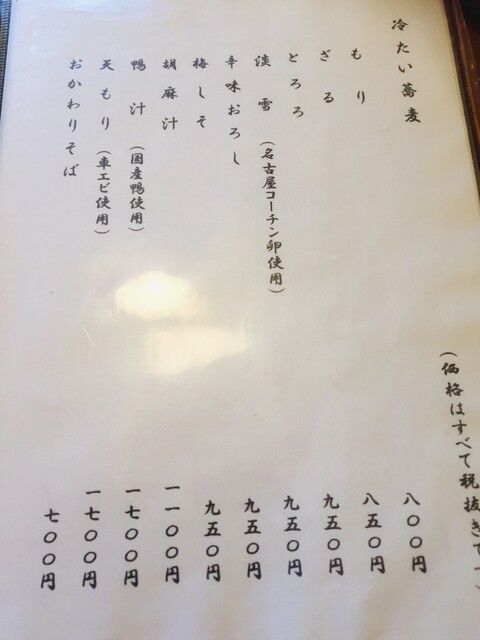 （価格はすべて税抜きで
冷たい蕎麦
もり 八〇〇円
ざる 八五〇円
とろろ 九五〇円
淡雪（名古屋コーチン卵使用） 九五〇円
辛味おろし 九五〇円
梅しそ 九五〇円
胡麻汁 一一〇〇円
鴨汁（国産鴨使用） 一七〇〇円
天もり（車エビ使用） 一七〇〇円
おかわりそば 七〇〇円